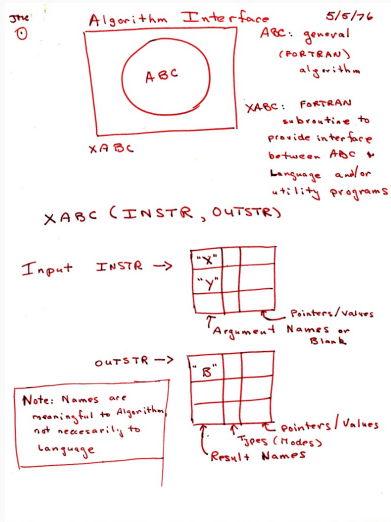 JMC Algorithm Interface 5/5/76
ABC: general
(FORTRAN)
algorithm
ABC
XABC: FORTRAN
subroutine to
provide interface
between ABC &
Language and/or
utility programs
XABC
XABC (INSTR, OUTSTR)
Input INSTR →
"X"
"Y"
Pointers/Values
Argument Names or
Blank
OUTSTR →
"B"
Pointers/Values
Types (Modes)
Result Names
Note: Names are
meaningful to Algorithm,
not necessarily to
Language